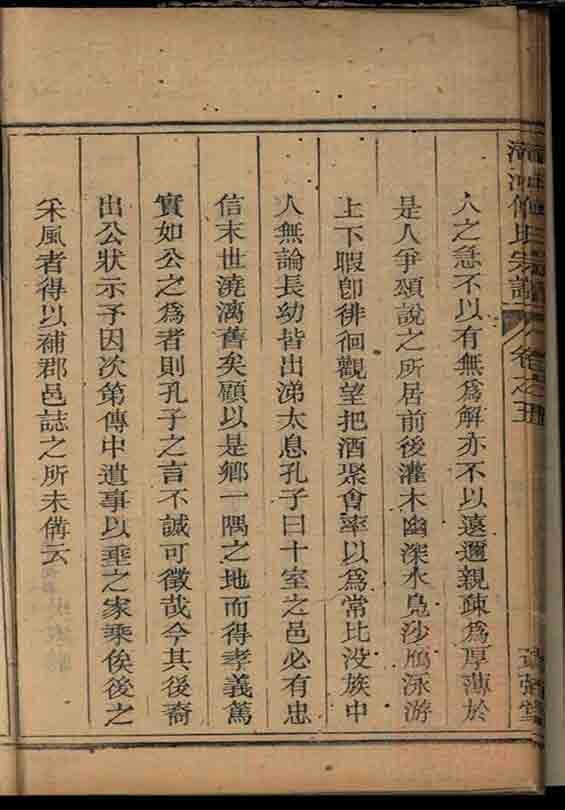 氏宗譜 卷之五
人之急不以有無爲解亦不以遠邇親疎爲厚薄於
是人爭頌說之所居前後灌木幽深水鳧沙鴈泳游
上下暇卽徘徊觀望把酒聚會率以爲常比沒族中
人無論長幼皆出涕太息孔子曰十室之邑必有忠
信末世澆漓舊矣顧以是鄉一隅之地而得孝義篤
實如公之爲者則孔子之言不誠可徵哉今其後裔
出公狀示予因次第傳中遺事以垂之家乘俟後之
采風者得以補郡邑誌之所未備云